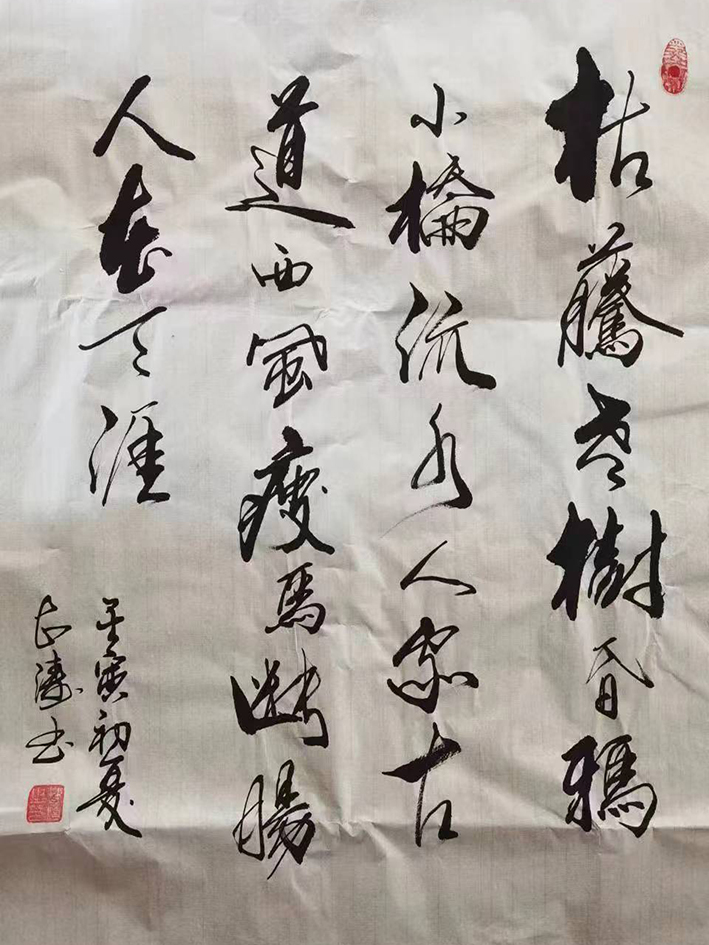 枯藤老樹昏鴉
小橋流水人家古
道西風瘦馬斷腸
人在天涯
壬寅初夏
长涛书